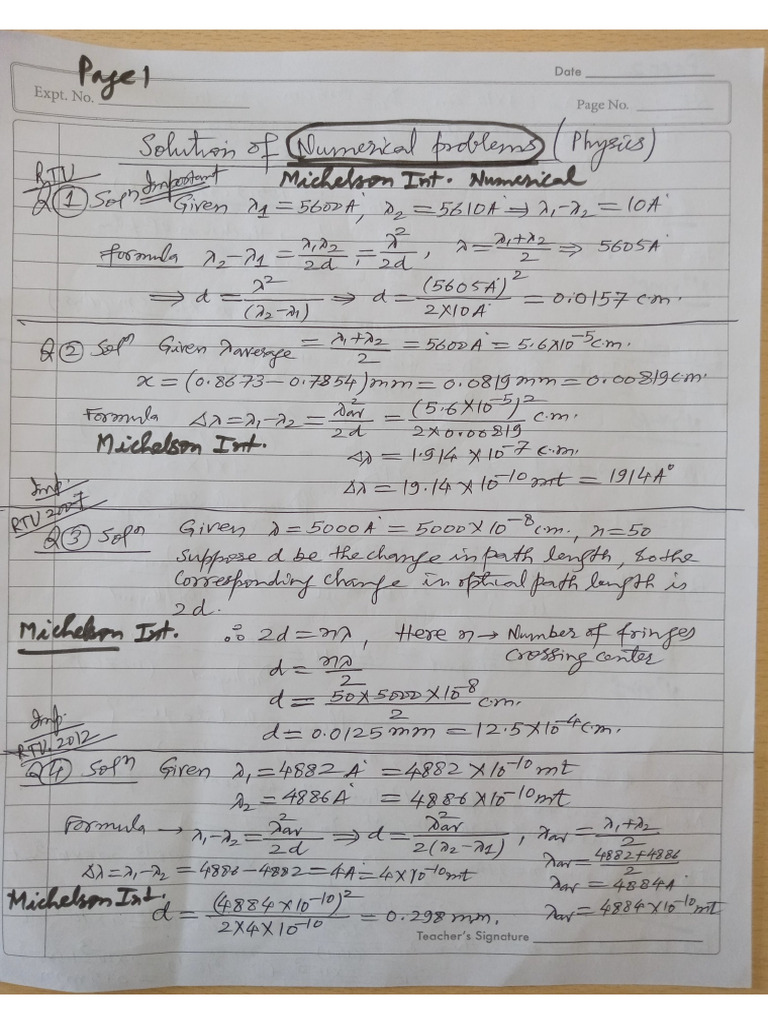 Page 1
Date
Expt. No.
Page No.
Solution of Numerical problems (Physics)
RTU Important Michelson Int. Numerical
Q① Solⁿ Given λ1 = 5600A°, λ2 = 5610A° ⇒ λ1-λ2 = 10A°
Formula λ2-λ1 = λ1λ2/2d = λ²/2d, λ = λ1+λ2/2 ⇒ 5605A°
⇒ d = λ²/(λ2-λ1) ⇒ d = (5605A°)²/2×10A° = 0.0157 c.m.
Q② Solⁿ Given λaverage = λ1+λ2/2 = 5600A° = 5.6×10⁻⁵ c.m.
x = (0.8673-0.7854) mm = 0.0819 mm = 0.00819 c.m.
Formula Δλ = λ1-λ2 = λ²av/2d = (5.6×10⁻⁵)²/2×0.00819 c.m.
Michelson Int.
Δλ = 1.914 × 10⁻⁷ c.m.
Δλ = 19.14 × 10⁻¹⁰ mt = 1914A°
Imp.
RTU 2007
Q③ Solⁿ Given λ = 5000A° = 5000×10⁻⁸ c.m., n=50
Suppose d be the change in path length, so the
corresponding change in optical path length is
2d.
Michelson Int. ∴ 2d = nλ, Here n → Number of fringes
crossing center
d = nλ/2
d = 50×5000×10⁻⁸/2 c.m.
d = 0.0125 mm = 12.5×10⁻⁴ c.m.
Imp.
RTU. 2012
Q④ Solⁿ Given λ1 = 4882 A° = 4882 × 10⁻¹⁰ mt
λ2 = 4886A° = 4886 × 10⁻¹⁰ mt
Formula → λ1-λ2 = λ²av/2d ⇒ d = λ²av/2(λ2-λ1), λav = λ1+λ2/2
λav = 4882+4886/2
Δλ = λ1-λ2 = 4886-4882 = 4A° = 4×10⁻¹⁰ mt
λav = 4884A°
Michelson Int.
d = (4884×10⁻¹⁰)²/2×4×10⁻¹⁰ = 0.298 mm.
λav = 4884×10⁻¹⁰ mt
Teacher's Signature